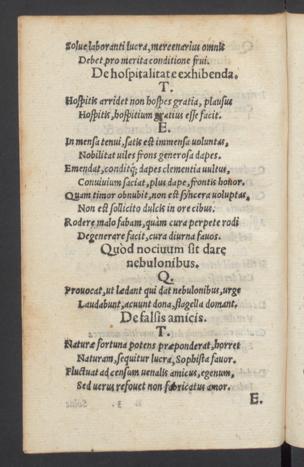 Solue laboranti lucra, mercenarius omnis
Debet pro merita conditione frui.
De hospitalitate exhibenda.
T.
Hospitis arridet non hospes gratia, plausus
Hospitis, hospitium gratius esse facit.
E.
In mensa tenui, satis est immensa uoluntas,
Nobilitat uiles frons generosa dapes.
Emendat, conditq; dapes clementia uultus,
Conuiuium saciat, plus dape, frontis honor.
Quam timor obnubit, non est synçera uoluptas,
Non est sollicito dulcis in ore cibus.
Rodere malo fabam, quàm cura perpete rodi
Degenerare facit, cura diurna fauos.
Quòd nociuum sit dare
nebulonibus.
Q.
Prouocat, ut lædant qui dat nebulonibus, urge
Laudabunt, acuunt dona, flagella domant.
De falsis amicis.
T.
Naturæ fortuna potens præponderat, horret
Naturam, sequitur lucra, Sophista fauor.
Fluctuat ad censum uenalis amicus, egenum,
Sed uerus refouet non fabricatus amor.
E.